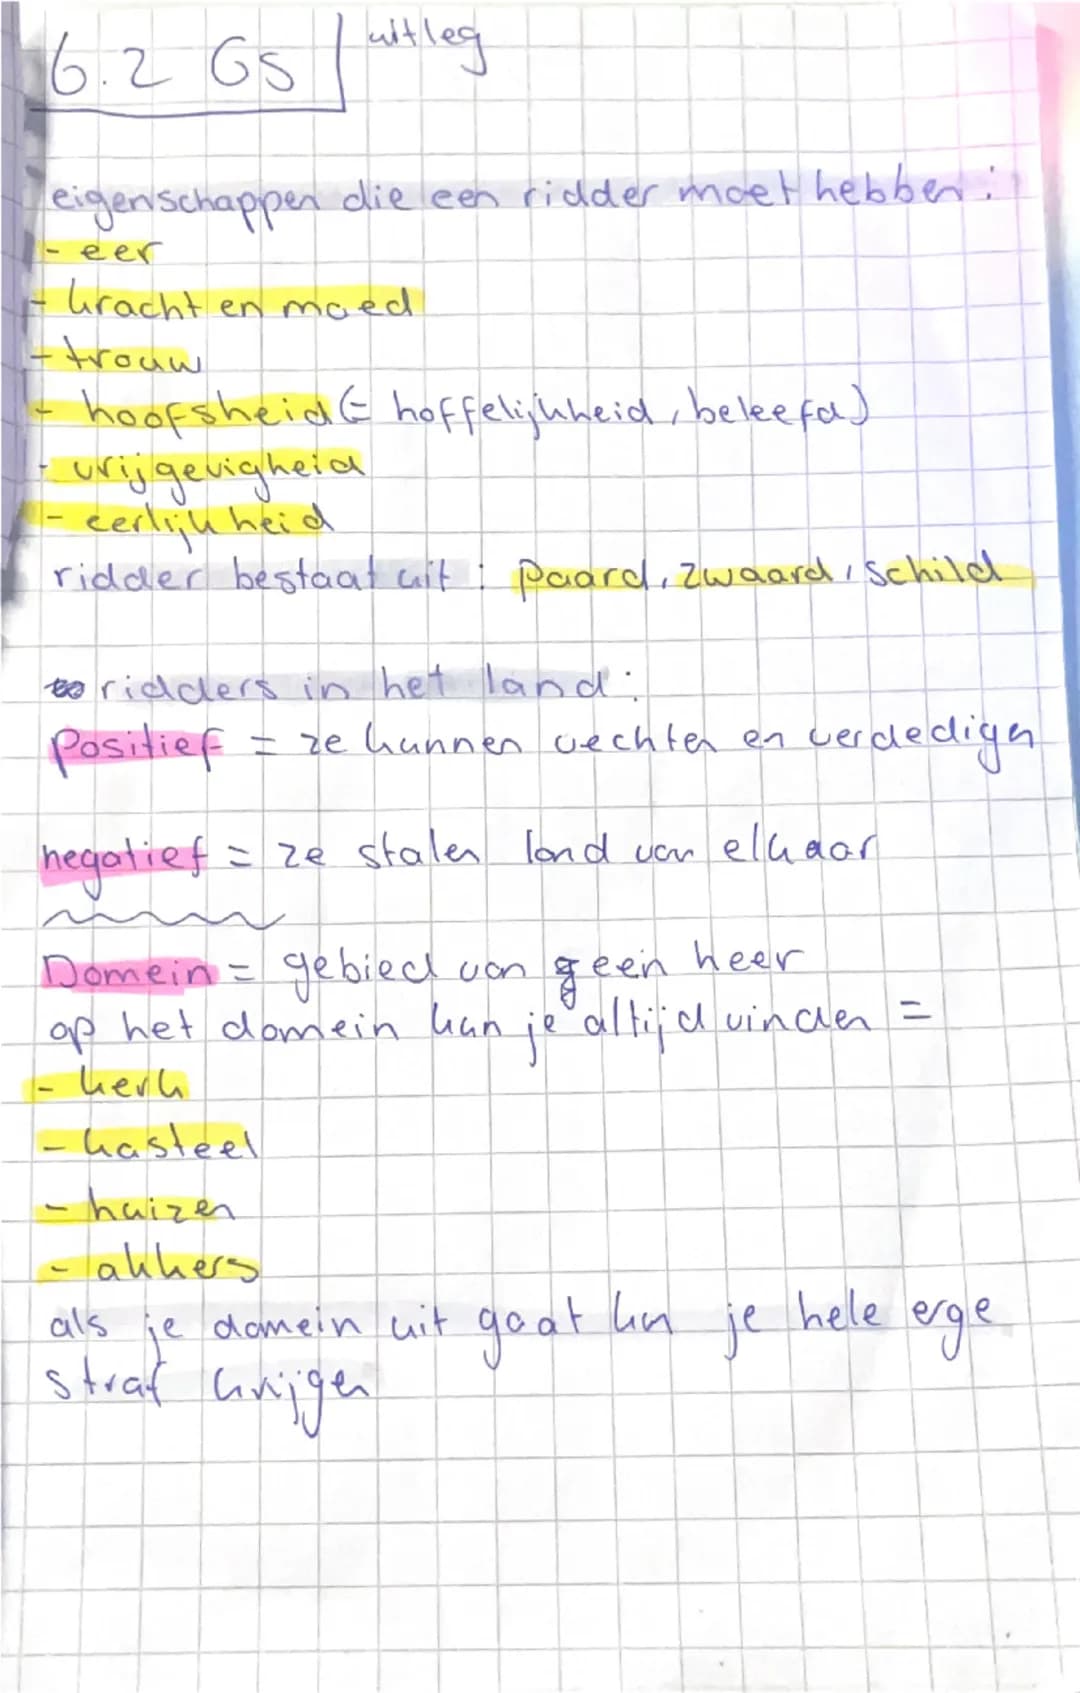 6.2 GS uitleg
eigenschappen die een ridder moet hebben:
- eer
- kracht en moed
- trouw
- hoofsheid (= hoffelijkheid, beleefd)
- vrijgevigheid
- eerlijkheid
ridder bestaat uit: paard, zwaard, schild
ridders in het land:
positief = ze kunnen vechten en verdedigen
negatief = ze stalen land van elkaar
Domein = gebied van een heer
op het domein kan je altijd vinden =
- kerk
- kasteel
- huizen
- akkers
als je domein uit gaat kn je hele erge
straf krijgen